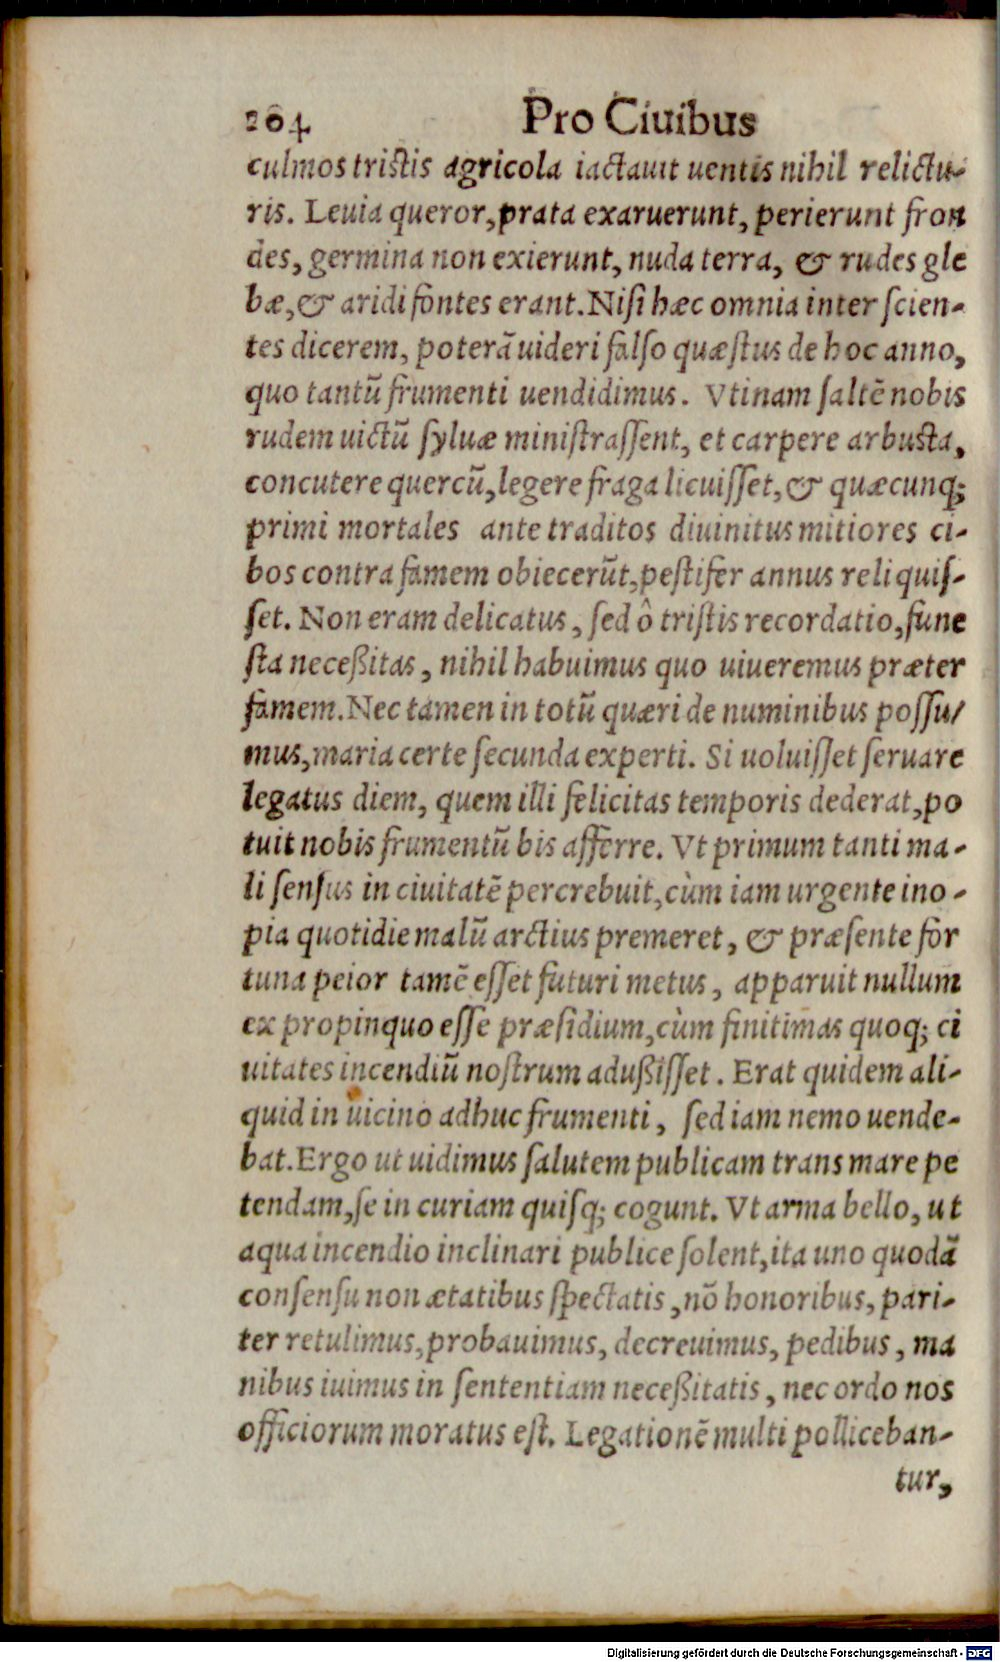 204 Pro Ciuibus
culmos tristis agricola iactauit uentis nihil relictu-
ris. Leuia queror, prata exaruerunt, perierunt fron
des, germina non exierunt, nuda terra, & rudes gle
bæ, & aridi fontes erant. Nisi hæc omnia inter scien-
tes dicerem, poterã uideri falso quæstus de hoc anno,
quo tantũ frumenti uendidimus. Vtinam saltẽ nobis
rudem uictũ syluæ ministrassent, et carpere arbusta,
concutere quercũ, legere fraga licuisset, & quæcunq;
primi mortales ante traditos diuinitus mitiores ci-
bos contra famem obiecerũt, pestifer annus reliquis-
set. Non eram delicatus, sed ô tristis recordatio, fune
sta neceßitas, nihil habuimus quo uiueremus præter
famem. Nec tamen in totũ quæri de numinibus possu/
mus, maria certe secunda experti. Si uoluisset seruare
legatus diem, quem illi felicitas temporis dederat, po
tuit nobis frumentũ bis afferre. Vt primum tanti ma-
li sensus in ciuitatẽ percrebuit, cùm iam urgente ino-
pia quotidie malũ arctius premeret, & præsente for
tuna peior tamẽ esset futuri metus, apparuit nullum
ex propinquo esse præsidium, cùm finitimas quoq; ci
uitates incendiũ nostrum adußisset. Erat quidem ali-
quid in uicino adhuc frumenti, sed iam nemo uende-
bat. Ergo ut uidimus salutem publicam trans mare pe
tendam, se in curiam quisq; cogunt. Vt arma bello, ut
aqua incendio inclinari publice solent, ita uno quodã
consensu non ætatibus spectatis, nõ honoribus, pari-
ter retulimus, probauimus, decreuimus, pedibus, ma
nibus iuimus in sententiam neceßitatis, nec ordo nos
officiorum moratus est. Legationẽ multi polliceban-
tur,
Digitalisierung gefördert durch die Deutsche Forschungsgemeinschaft - DFG